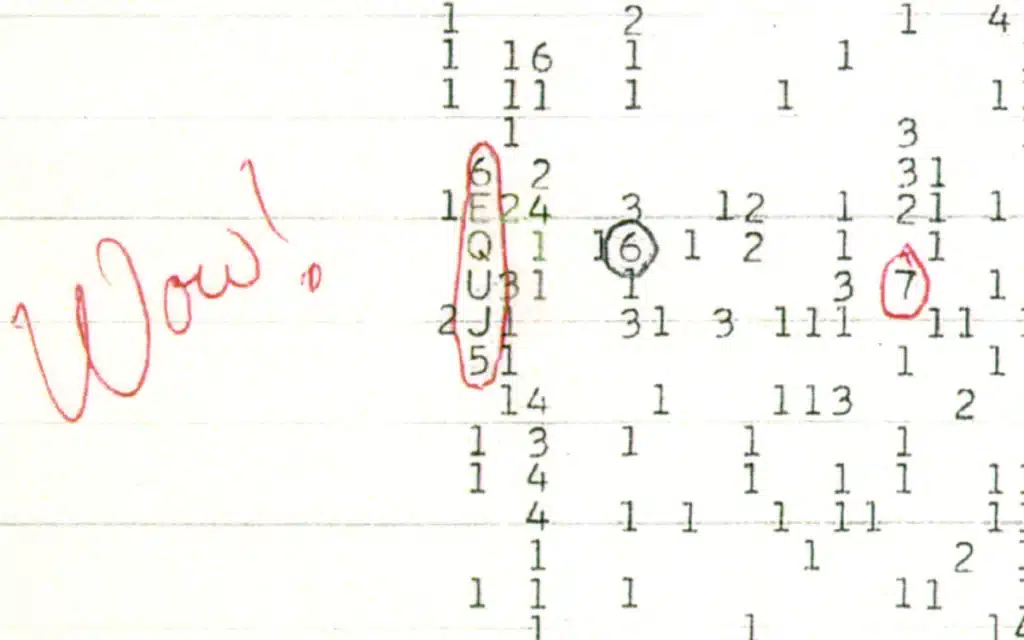 1 2 1 4
1 16 1 1
1 11 1 1 1
1 3
6 2 31
1 E 24 3 12 1 21 1
Q 1 16 1 2 1 1
U31 1 3 7 1
2 J1 31 3 111 11
51 1 1
14 1 113 2
1 3 1 1 1
1 4 1 1 1 1
4 1 1 1 11 1
1 1 2
1 1 1 11
1 1 14
Wow!